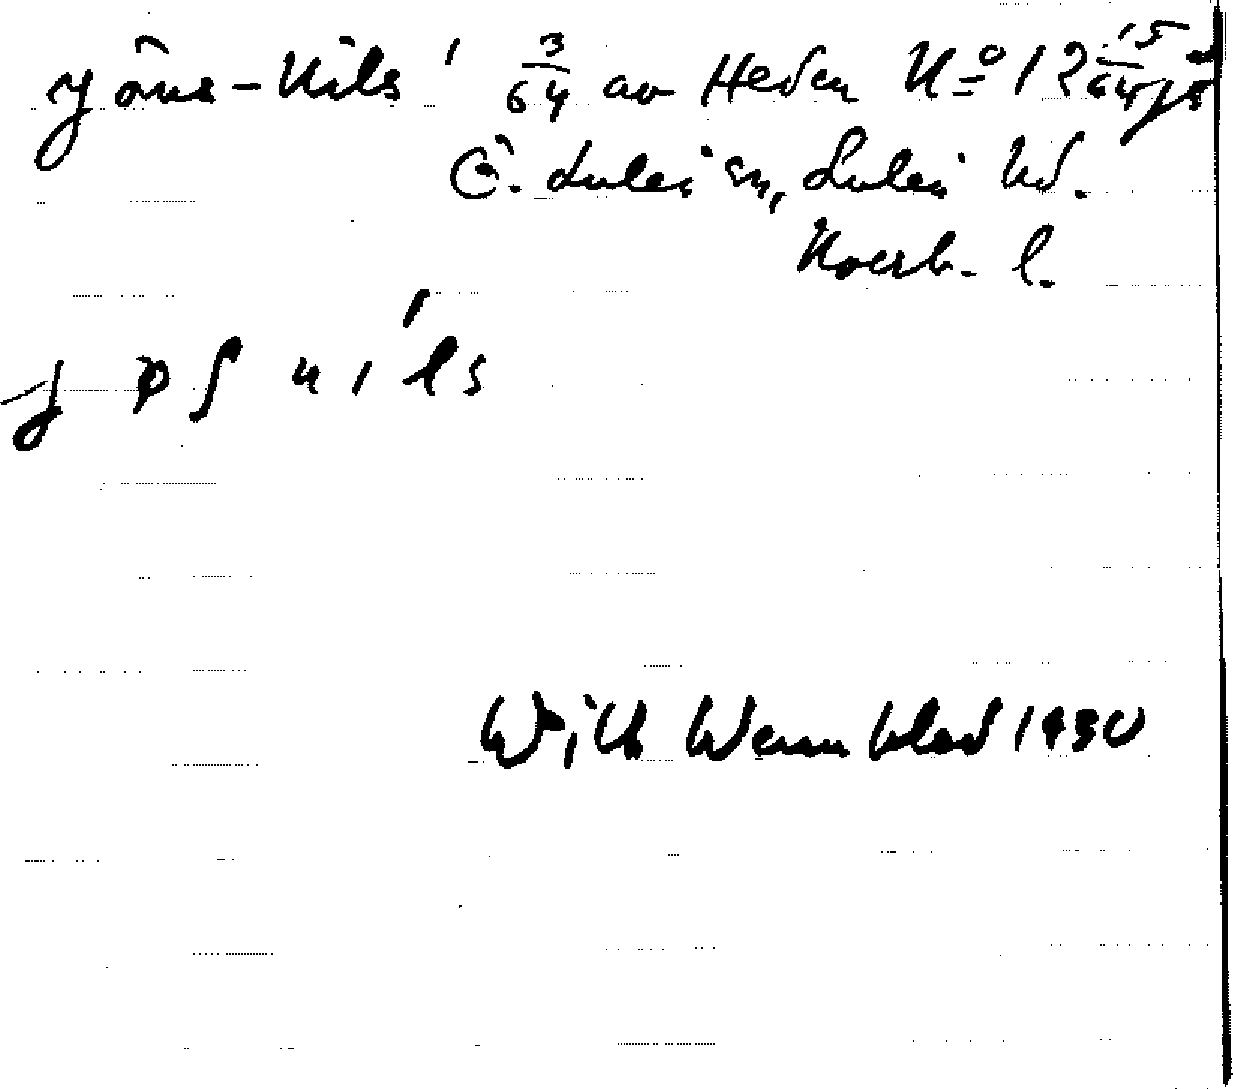 Jöns-Nils' 3/64 av Heden No 12 15/64
Ö. Luleå sn, Luleå hd.
Norrb. l.
Wilh Wennblad 1930